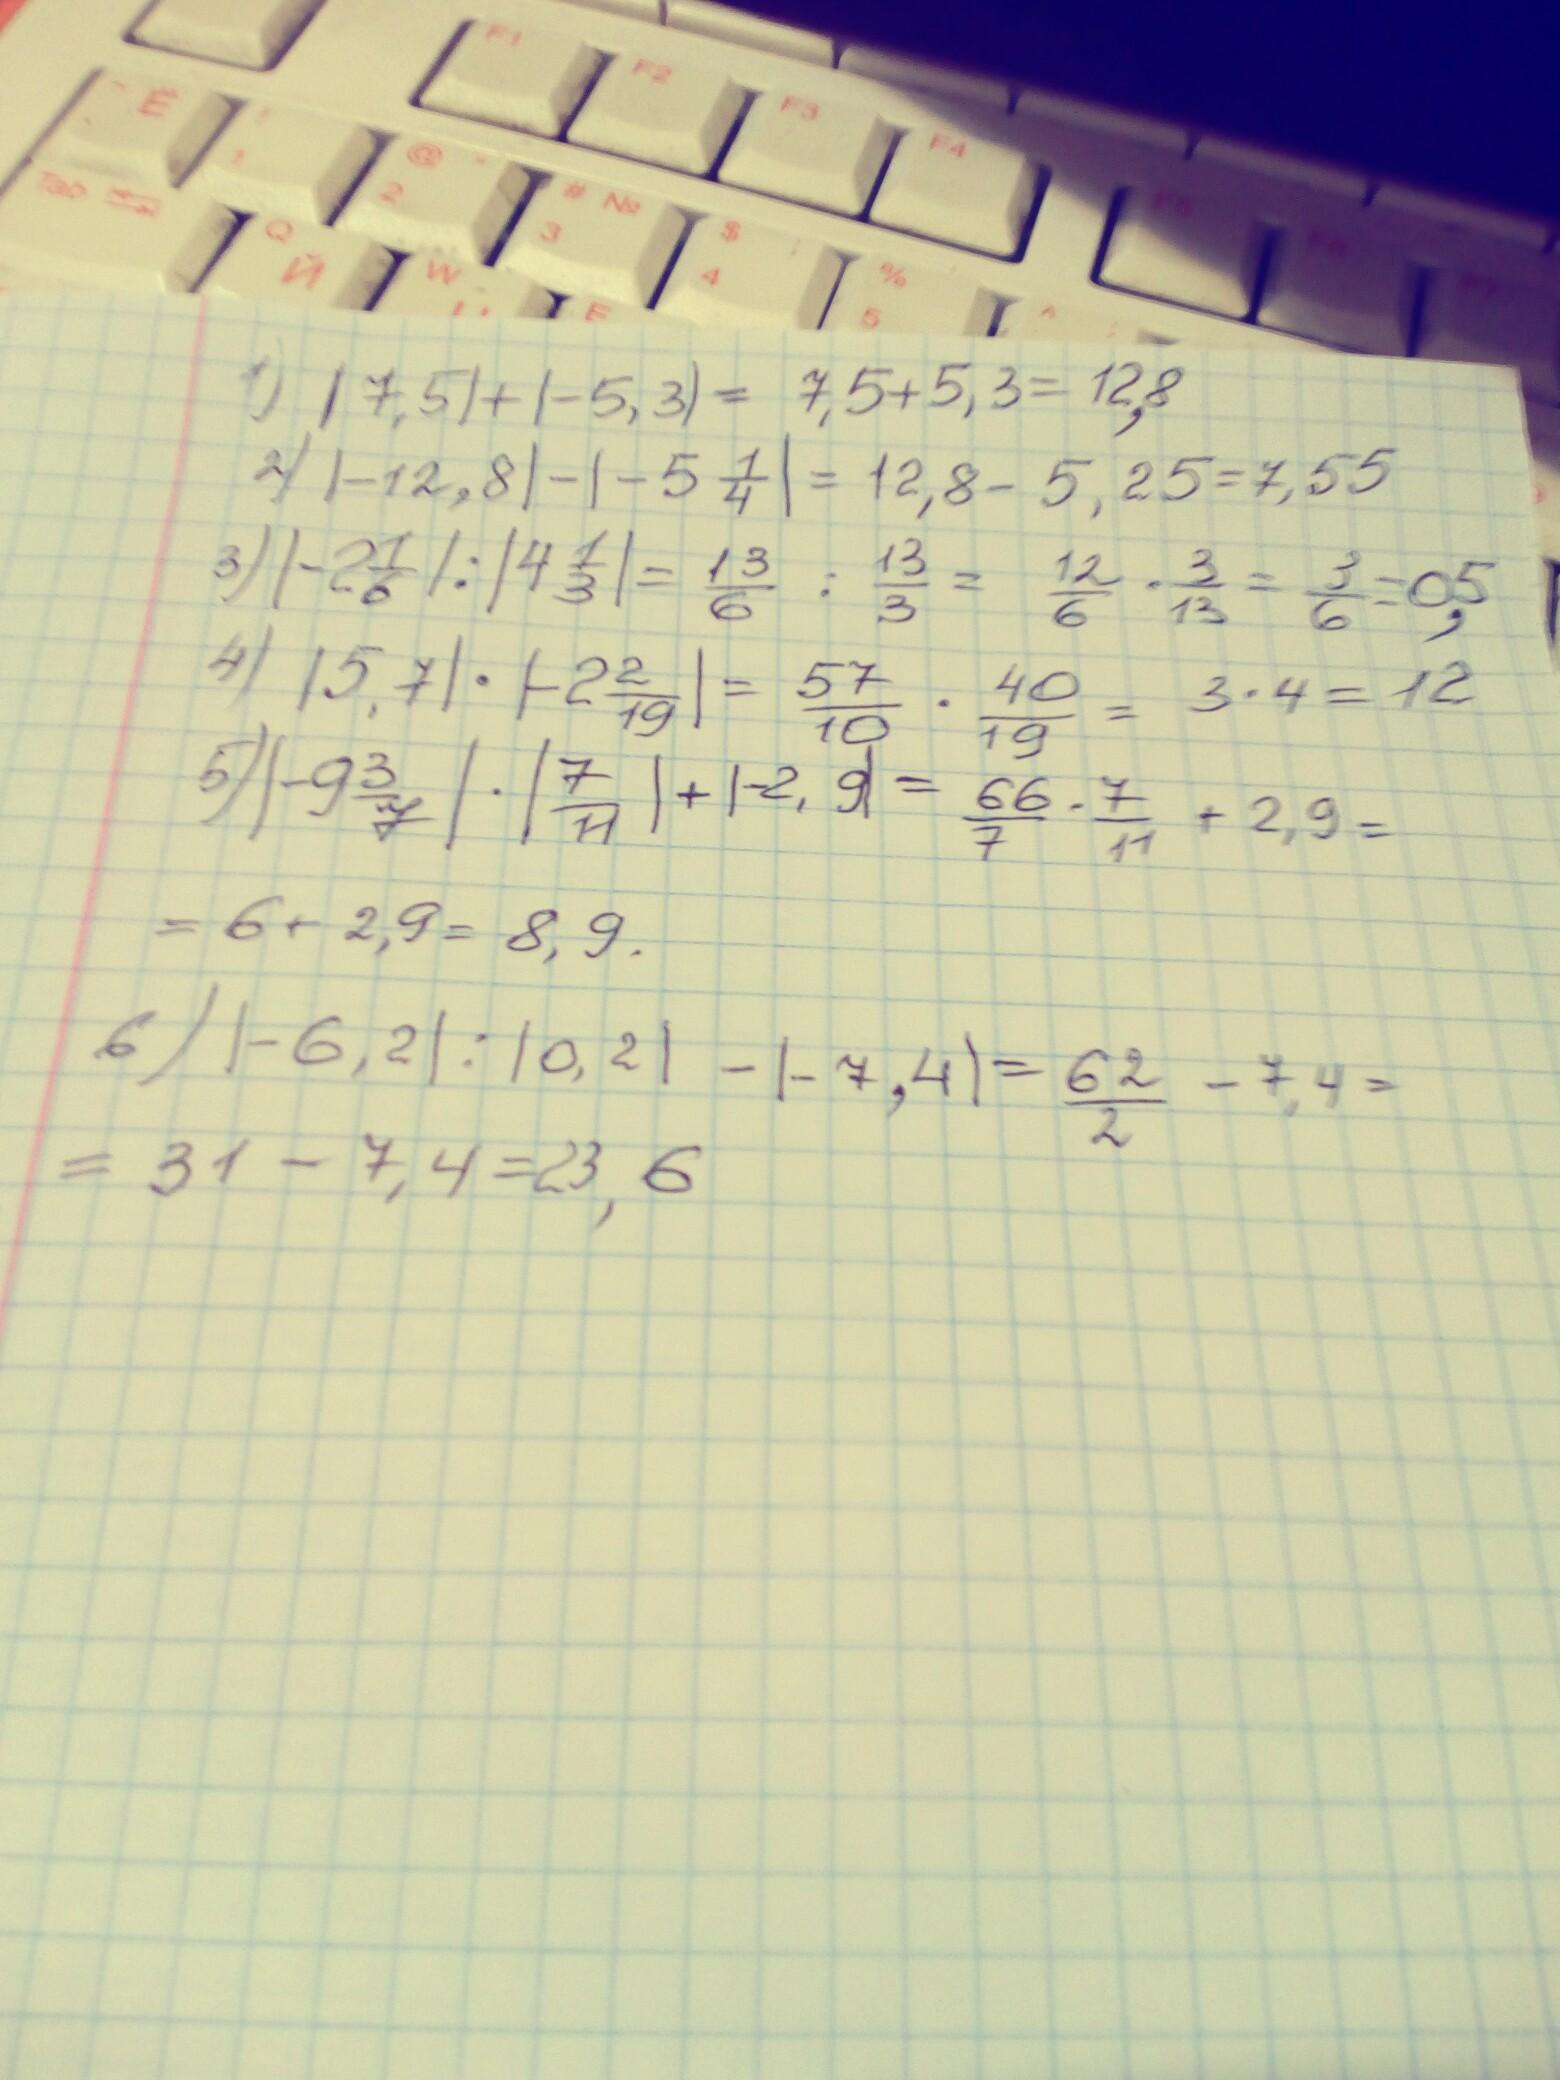 F1 F2 F3 F4 F5 F6 F7
Ё ! 1 @ 2 # № 3 $ ; 4 % 5 ^ :
Tab Q Й W E
1) |7,5|+|-5,3|= 7,5+5,3= 12,8
2) |-12,8|-|-5 1/4|= 12,8- 5,25=7,55
3) |-2 1/6|:|4 1/3|= 13/6 : 13/3 = 12/6 · 3/13 = 3/6 = 0,5
4) |5,7|·|-2 2/19|= 57/10 · 40/19 = 3·4=12
5) |-9 3/7|·|7/11|+|-2,9|= 66/7 · 7/11 + 2,9=
= 6+ 2,9= 8,9.
6) |-6,2|:|0,2| -|-7,4|= 62/2 - 7,4=
= 31 - 7,4=23,6